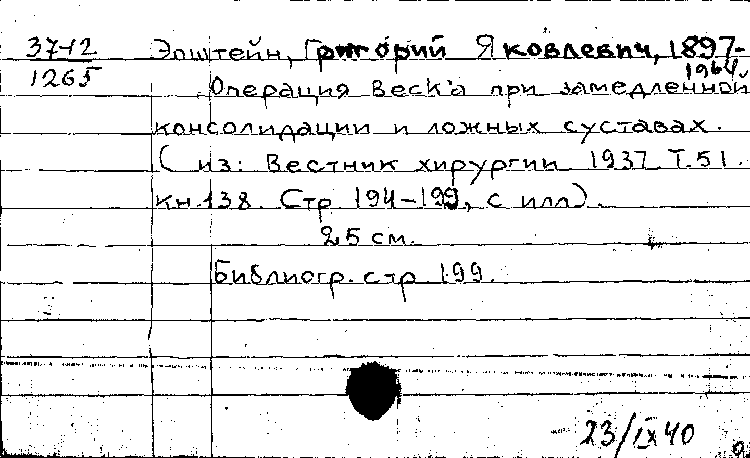 37-12
1265
Эпштейн, Григорий Яковлевич, 1897-
1964.
Операция Beck'а при замедленной
консолидации и ложных суставах.
(из: Вестник хирургии 1937 Т.51.
кн.138. Стр 194-199, с илл).
25 см.
Библиогр. стр 199.
23/IX 40